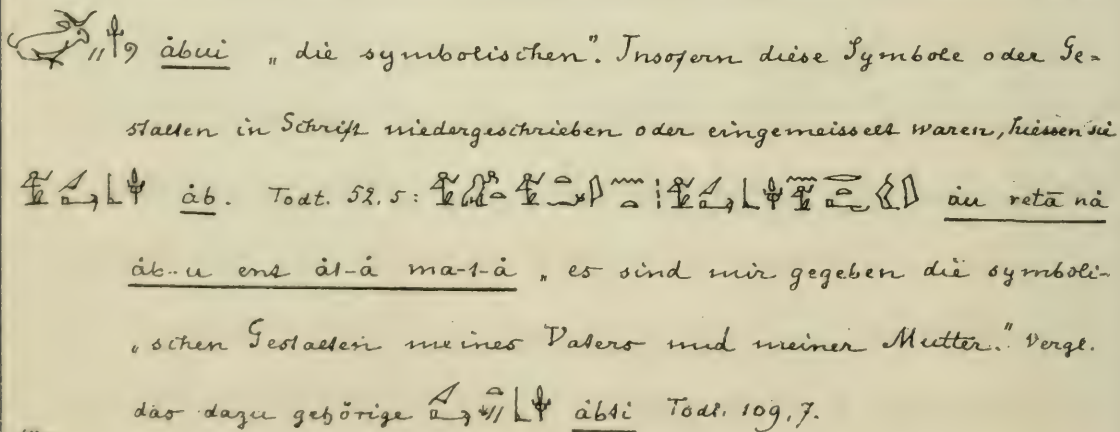 ȧbui „die symbolischen". Insofern diese Symbole oder Ge-
stalten in Schrift niedergeschrieben oder eingemeisselt waren, hiessen sie
ȧb. Todt. 52,5: ȧu retā nȧ
ȧb-u ent ȧt-ȧ ma-t-ȧ „es sind mir gegeben die symboli-
„schen Gestalten meines Vaters und meiner Mutter." Vergl.
das dazu gehörige ȧbti Todt. 109,7.